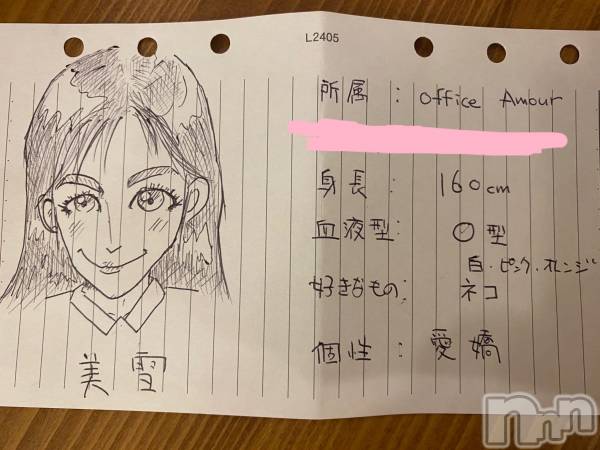 L2405
所属: Office Amour
身長: 160cm
血液型: O型
白・ピンク・オレンジ
好きなもの: ネコ
個性: 愛嬌
美雪
nnn